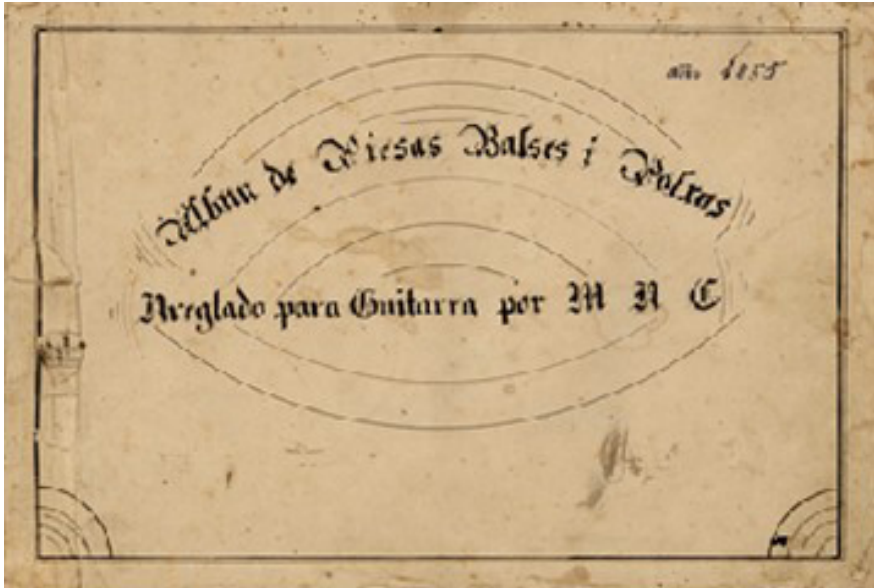 año 1855
Album de Piesas Balses i Polkas
Areglado para Guitarra por M A C